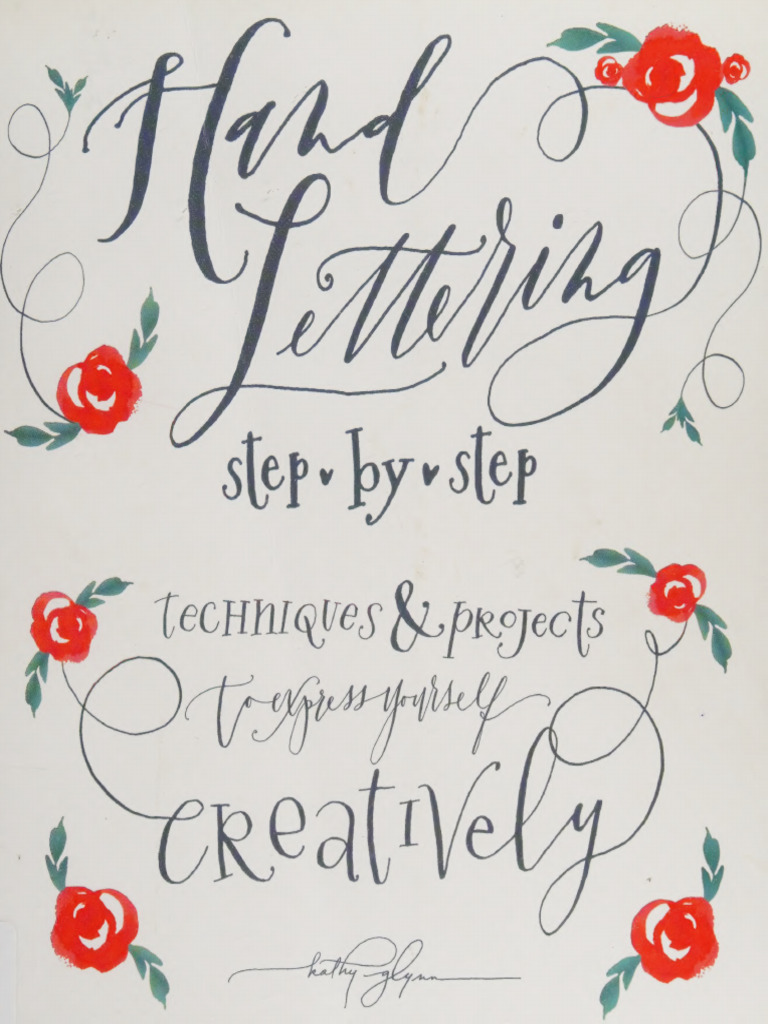 Hand
Lettering
step ♥ by ♥ step
techniques & projects
to express yourself
creatively
kathy glynn